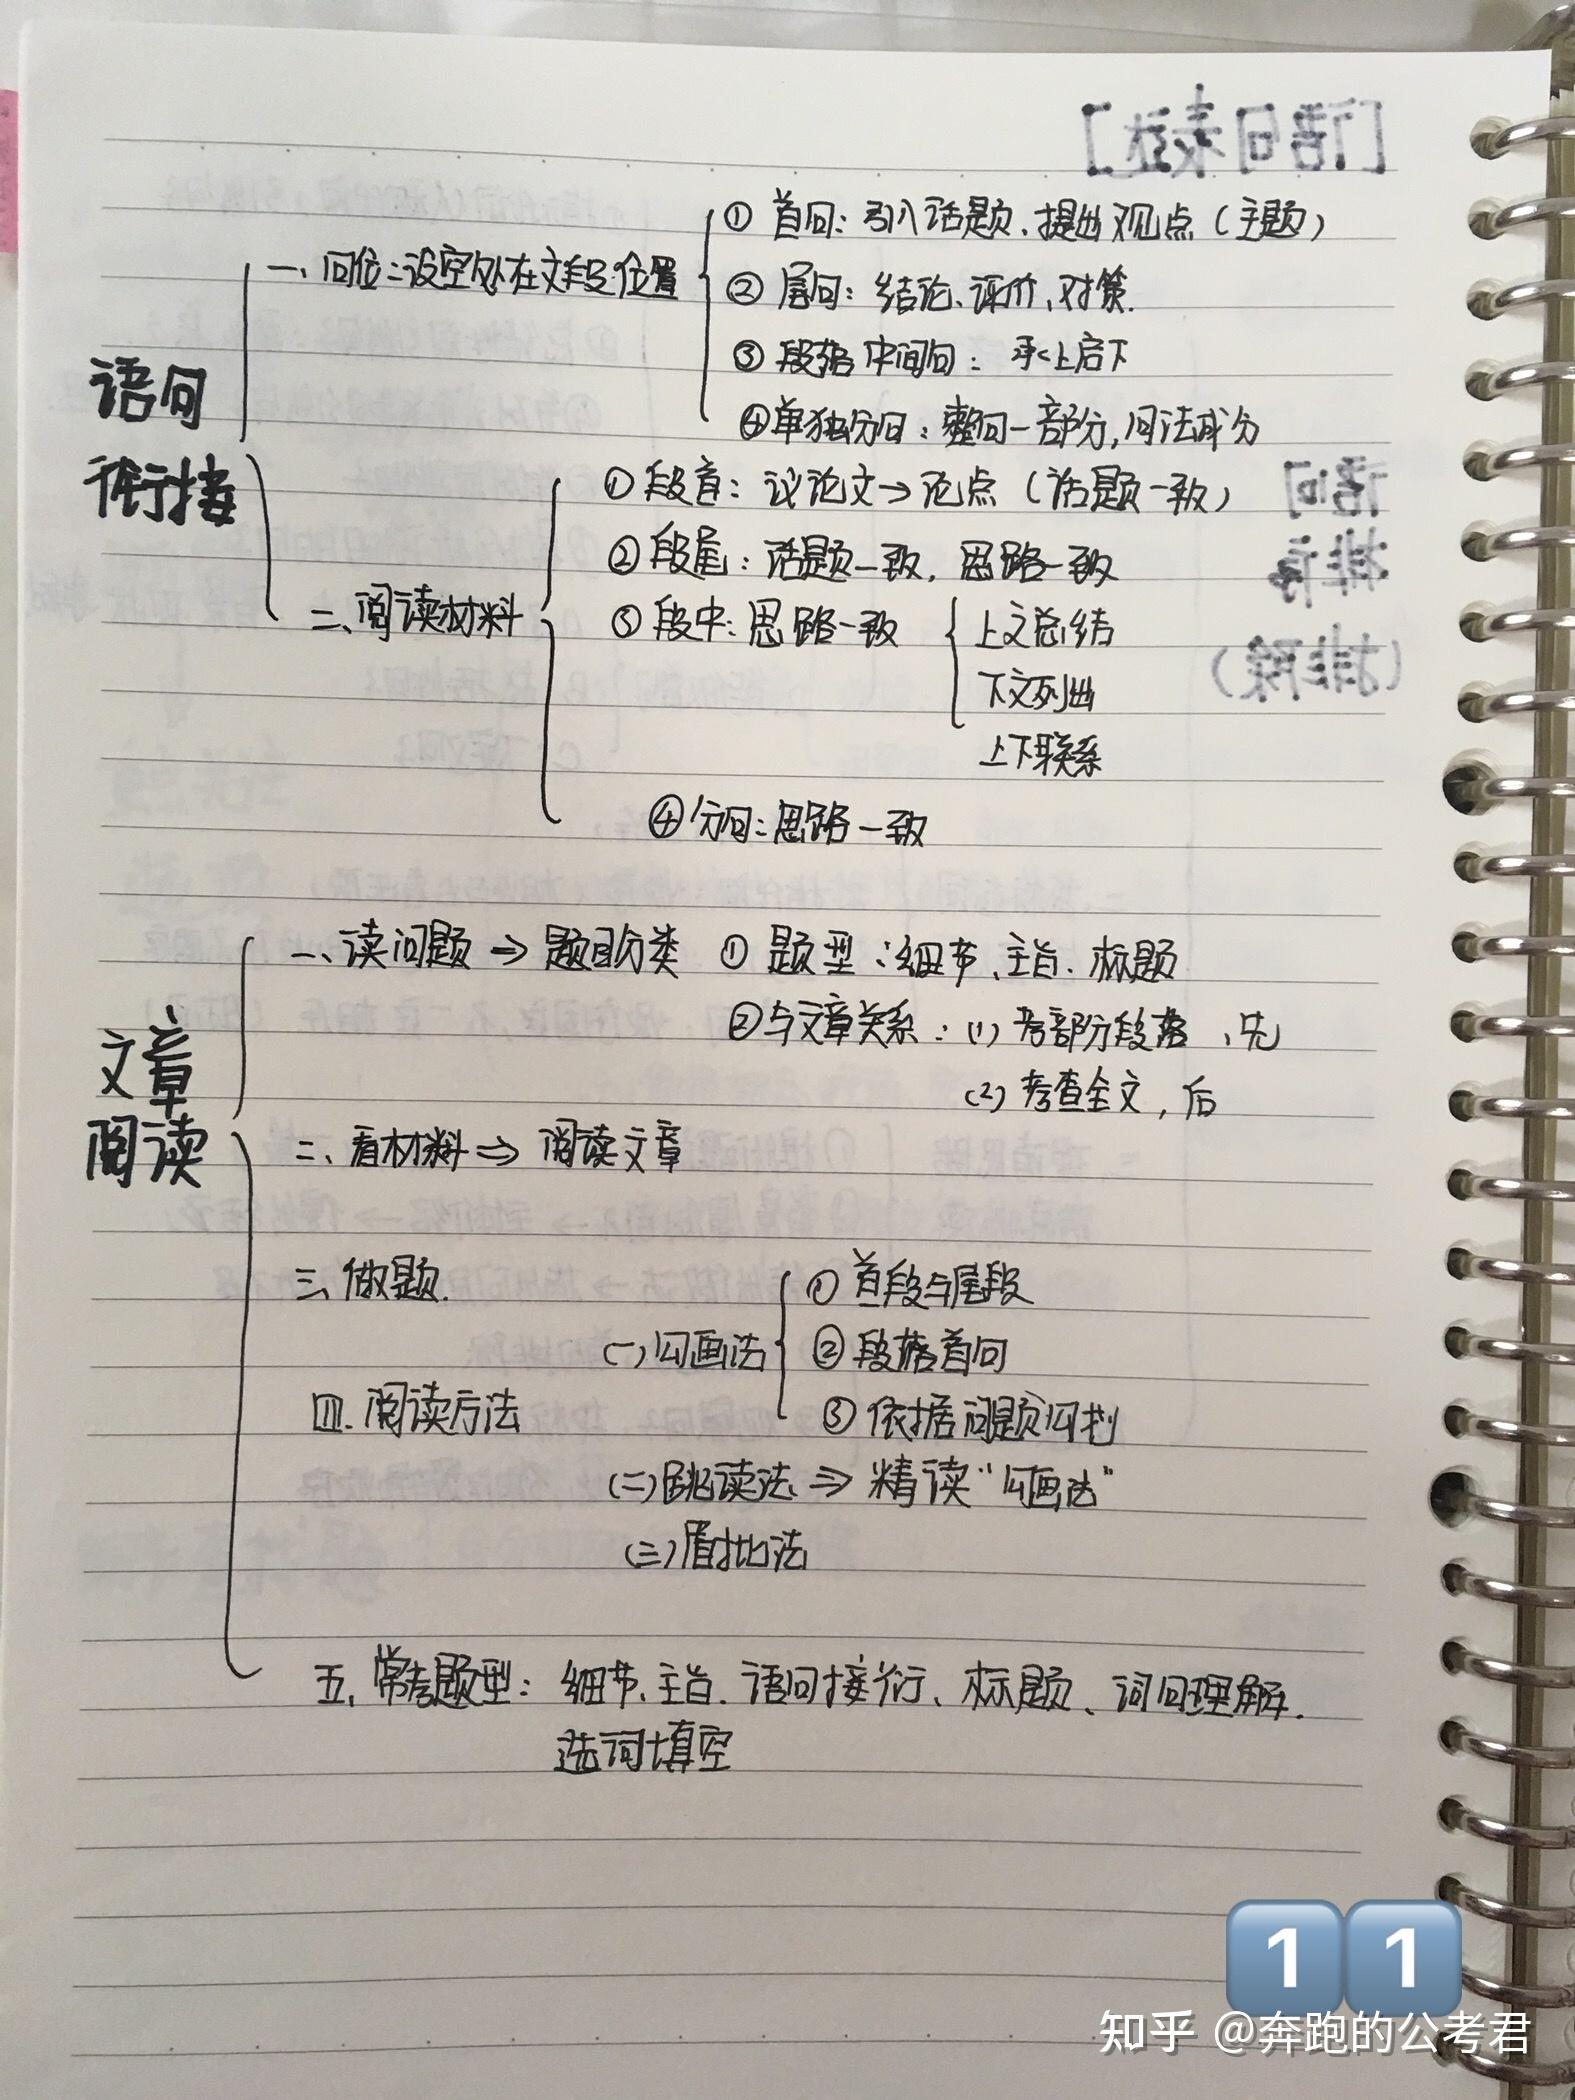 [语句表达]
一、句位：设空处在文段位置
① 首句：引入话题、提出观点（主题）
② 尾句：结论、评价、对策.
③ 段落中间句：承上启下
④ 单独分句：整句一部分,句法成分
语句
衔接
语句
排序
(排除)
二、阅读材料
① 段首：议论文→论点（话题一致）
② 段尾：话题一致，思路一致
③ 段中：思路一致
上文总结
下文列出
上下联系
④ 分句：思路一致
文章
阅读
一、读问题 ⇒ 题目分类 ① 题型：细节、主旨、标题
② 与文章关系：(1) 考部分段落、先
(2) 考查全文，后
二、看材料 ⇒ 阅读文章
三、做题.
四. 阅读方法
(一)勾画法
① 首段与尾段
② 段落首句
③ 依据问题勾划
(二)跳读法 ⇒ 精读“勾画法”
(三)眉批法
五、常考题型：细节、主旨、语句接衍、标题、词句理解.
选词填空
11
知乎 @奔跑的公考君